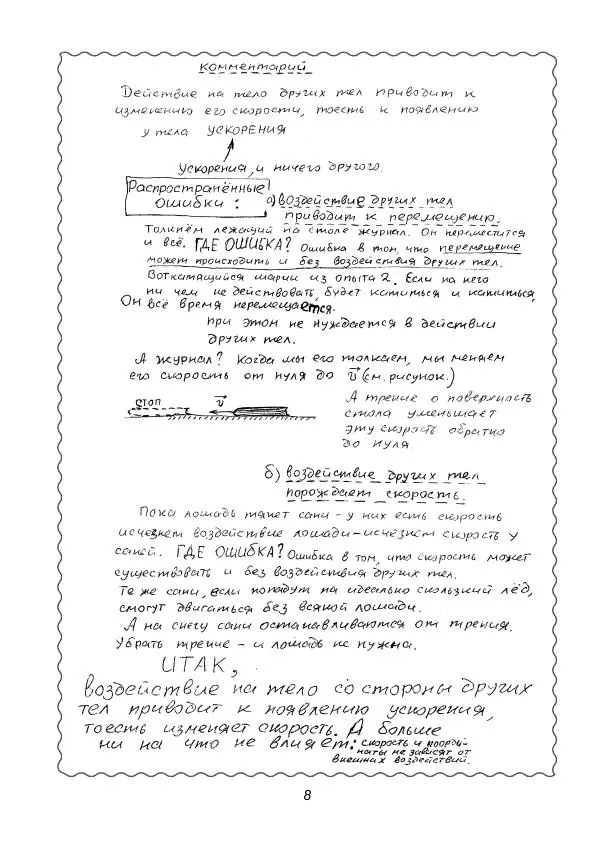 Комментарий
Действие на тело других тел приводит к
изменению его скорости, тоесть к появлению
у тела УСКОРЕНИЯ
Ускорения, и ничего другого.
Распространённые
ошибки:
а) воздействие других тел
приводит к перемещению.
Толкнём лежащий на столе журнал. Он переместится
и всё. ГДЕ ОШИБКА? Ошибка в том, что перемещение
может происходить и без воздействия других тел.
Вот катящийся шарик из опыта 2. Если на него
ни чем не действовать, будет катиться и катиться,
Он всё время перемещается.
при этом не нуждается в действии
других тел.
А журнал? Когда мы его толкаем, мы меняем
его скорость от нуля до v⃗ (см. рисунок.)
стоп
v⃗
А трение о поверхность
стола уменьшает
эту скорость обратно
до нуля
б) воздействие других тел
порождает скорость.
Пока лошадь тянет сани - у них есть скорость
исчезнет воздействие лошади - исчезнет скорость у
саней. ГДЕ ОШИБКА? Ошибка в том, что скорость может
существовать и без воздействия других тел.
Те же сани, если попадут на идеально скользкий лёд,
смогут двигаться без всякой лошади.
А на снегу сани останавливаются от трения.
Убрать трение - и лошадь не нужна.
ИТАК,
воздействие на тело со стороны других
тел приводит к появлению ускорения,
тоесть изменяет скорость. А больше
ни на что не влияет: скорость и коорди-
наты не зависят от
внешних воздействий.
8